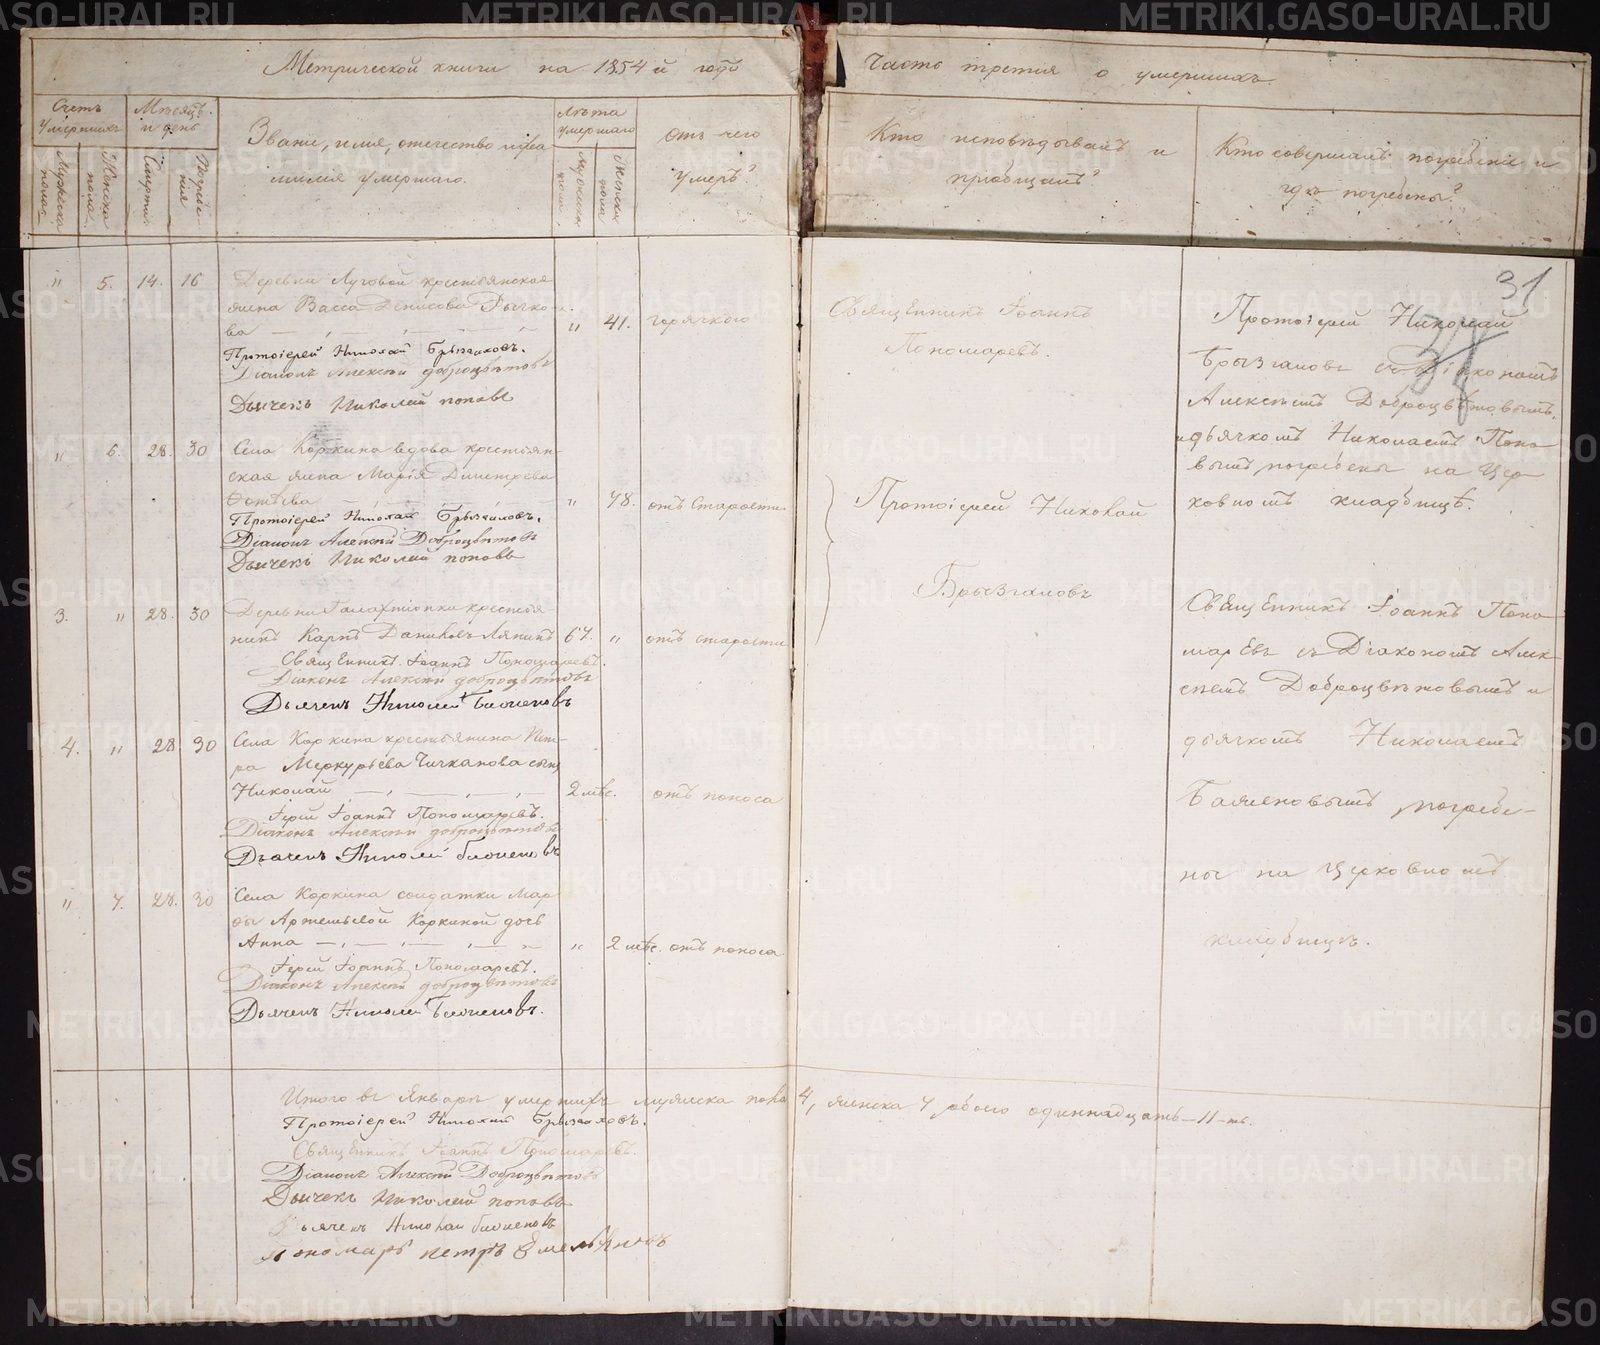 Метрической книги на 1854й годъ
Часть третія о умершихъ.
Счетъ умершихъ
Мѣсяцъ и день
Званіе, имя, отечество и фа-
милія умершаго.
Лѣта умершаго
Отъ чего
умеръ?
Кто исповѣдывалъ и
пріобщалъ?
Кто совершалъ погребеніе и
гдѣ погребены?
Мужеска пола
Женска пола
Смерти
Погребенія
Мужеска пола
Женска пола
31
" 5. 14. 16
Деревни Луговой крестьянская
жена Васса Денисова Рычко-
ва
" 41. горячкою
Протоіерей Николай Брызгаловъ.
Діаконъ Алексѣй Доброцвѣтовъ
Дьячекъ Николай Поповъ
Священникъ Іоаннъ
Пономаревъ.
Протоіерей Николай
Брызгаловъ съ Діакономъ
Алексѣемъ Доброцвѣтовымъ
и дьячкомъ Николаемъ Попо-
вымъ погребены на Цер-
ковномъ кладбищѣ.
" 6. 28. 30
Села Коркина вдова крестьян-
ская жена Марія Димитрева
" 78. отъ старости
Протоіерей Николай Брызгаловъ.
Діаконъ Алексѣй Доброцвѣтовъ
Дьячекъ Николай Поповъ
Протоіерей Николай
Брызгаловъ
3. " 28. 30
Деревни Галактіонки крестья-
нинъ Карпъ Даниловъ Ляпинъ
67. " отъ старости
Священникъ Іоаннъ Пономаревъ.
Діаконъ Алексѣй Доброцвѣтовъ
Дьячекъ Николай
Священникъ Іоаннъ Поно-
маревъ съ Діакономъ Алек-
сѣемъ Доброцвѣтовымъ и
дьячкомъ Николаемъ
погребе-
ны на Церковномъ
кладбищѣ.
4. " 28 30
Села Коркина крестьянина Пет-
ра Меркурьева Чичканова сынъ
Николай
2 мѣс. отъ поноса
Іерей Іоаннъ Пономаревъ.
Діаконъ Алексѣй Доброцвѣтовъ
Дьячекъ Николай
" 7. 28. 30
Села Коркина солдатки Мар-
ѳы Артемьевой Коркиной дочь
Анна
" 2 мѣс. отъ поноса
Іерей Іоаннъ Пономаревъ.
Діаконъ Алексѣй Доброцвѣтовъ
Дьячекъ Николай
Итого въ Январѣ умершихъ мужеска пола 4, женска 7, обоего одиннадцать – 11-ть.
Протоіерей Николай Брызгаловъ.
Священникъ Іоаннъ Пономаревъ.
Діаконъ Алексѣй Доброцвѣтовъ
Дьячекъ Николай Поповъ
Дьячекъ Николай
Пономарь Петръ Емельяновъ
METRIKI.GASO-URAL.RU